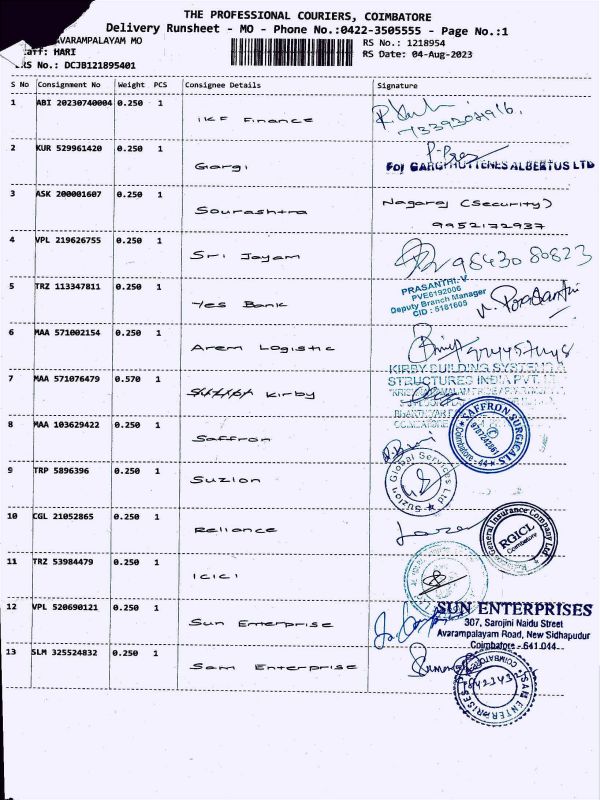 THE PROFESSIONAL COURIERS, COIMBATORE
Delivery Runsheet - MO - Phone No.:0422-3505555 - Page No.:1
AVARAMPALAYAM MO
RS No.: 1218954
HARI
RS Date: 04-Aug-2023
RS No.: DCJB121895401
S No Consignment No Weight PCS Consignee Details Signature
1 ABI 20230740004 0.250 1
IKF Finance
2 KUR 529961420 0.250 1
Gargi
For GARGI HUTTENES ALBERTUS LTD
3 ASK 200001607 0.250 1
Sourashtra
Nagaraj (Security)
9952172937
4 VPL 219626755 0.250 1
Sri Jayam
9843080823
5 TRZ 113347811 0.250 1
Yes Bank
PRASANTHI.V
PVE6192006
Deputy Branch Manager
CID : 5161605
6 MAA 571002154 0.250 1
Arem Logistic
7 MAA 571076479 0.570 1
Kirby
KIRBY BUILDING SYSTEMS &
STRUCTURES INDIA PVT.
8 MAA 103629422 0.250 1
Saffron
SAFFRON SURGICALS
9 TRP 5896396 0.250 1
Suzlon
Suzlon Global Services Ltd
10 CGL 21052865 0.250 1
Reliance
General Insurance Company Ltd.
RGICL
Coimbatore
11 TRZ 53984479 0.250 1
ICICI
12 VPL 520690121 0.250 1
Sun Enterprise
SUN ENTERPRISES
307, Sarojini Naidu Street
Avarampalayam Road, New Sidhapudur
Coimbatore - 641 044
13 SLM 325524832 0.250 1
Sam Enterprise
SAM ENTERPRISES
COIMBATORE